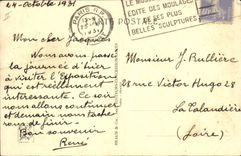 24-Octobre 1931
PARIS
1931
LE MUSÉE
EDITE DES MOULAGES
DE SES PLUS
BELLES SCULPTURES
Mon cher Jacques
Nous avons passé
la journée d'hier
à visiter l'Exposition
qui est réellement
intéressante. Ce soir
nous allons continuer
et demain nous tâche
rons de finir.
Bon souvenir
René
Monsieur J. Rullière
28 rue Victor Hugo 28
La Talaudière
(Loire)